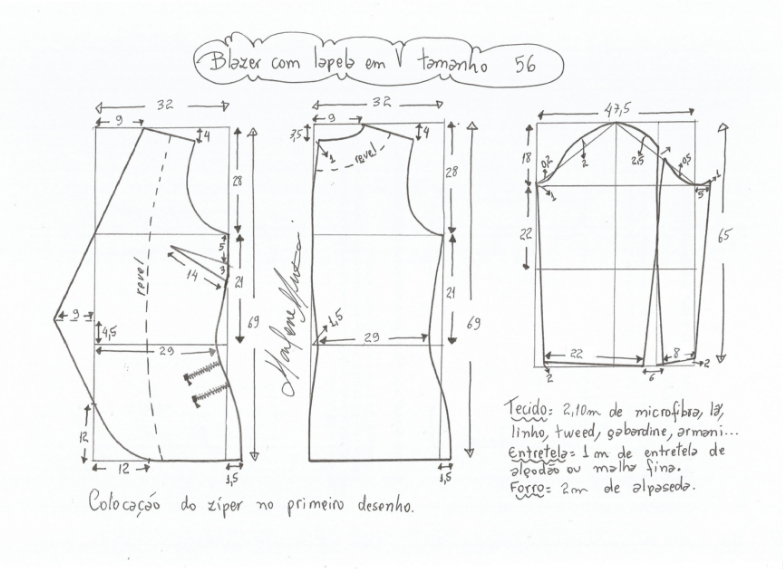 Blazer com lapela em V tamanho 56
32
9
4
28
5
3
14
21
revel
9
4,5
29
69
12
12
1,5
32
9
3,5
4
1
revel
28
21
1,5
29
69
1,5
Marlene Mukai
47,5
18
0,2
2
2,5
0,5
1
1
5
22
65
22
8
2
6
2
Tecido: 2,10m de microfibra, lã,
linho, tweed, gabardine, armani...
Entretela= 1m de entretela de
algodão ou malha fina.
Forro= 2m de alpaseda.
Colocação do zíper no primeiro desenho.